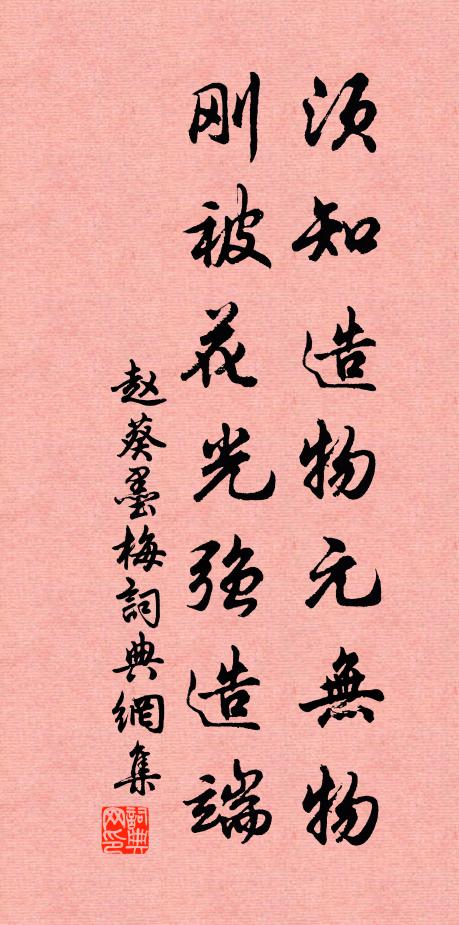 须知造物元無物
刚被花光強造端
赵葵墨梅詞典網集
詞典网印